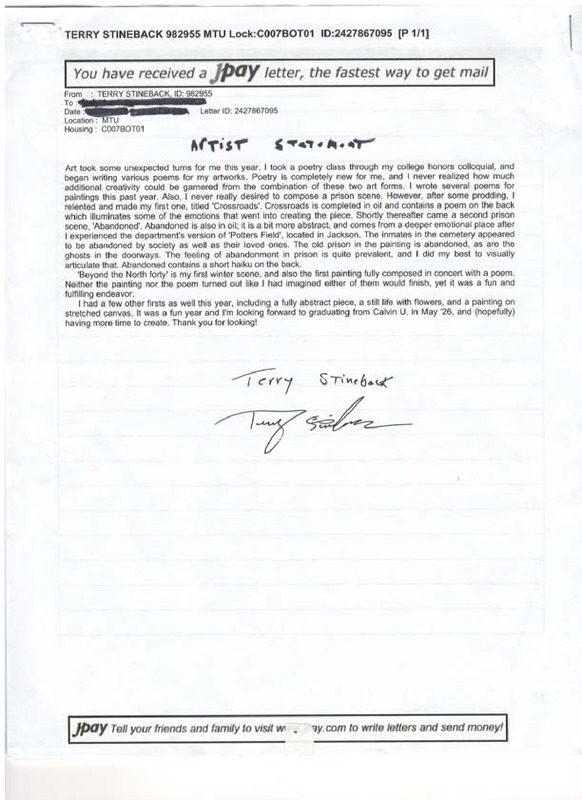 TERRY STINEBACK 982955 MTU Lock:C007BOT01 ID:2427867095 [P 1/1]
You have received a jpay letter, the fastest way to get mail
From : TERRY STINEBACK, ID: 982955
To
Date : Letter ID: 2427867095
Location : MTU
Housing : C007BOT01
ARTIST STATEMENT
Art took some unexpected turns for me this year. I took a poetry class through my college honors colloquial, and
began writing various poems for my artworks. Poetry is completely new for me, and I never realized how much
additional creativity could be garnered from the combination of these two art forms. I wrote several poems for
paintings this past year. Also, I never really desired to compose a prison scene. However, after some prodding, I
relented and made my first one, titled 'Crossroads'. Crossroads is completed in oil and contains a poem on the back
which illuminates some of the emotions that went into creating the piece. Shortly thereafter came a second prison
scene, 'Abandoned'. Abandoned is also in oil; it is a bit more abstract, and comes from a deeper emotional place after
I experienced the department's version of 'Potters Field', located in Jackson. The inmates in the cemetery appeared
to be abandoned by society as well as their loved ones. The old prison in the painting is abandoned, as are the
ghosts in the doorways. The feeling of abandonment in prison is quite prevalent, and I did my best to visually
articulate that. Abandoned contains a short haiku on the back.
'Beyond the North forty' is my first winter scene, and also the first painting fully composed in concert with a poem.
Neither the painting nor the poem turned out like I had imagined either of them would finish, yet it was a fun and
fulfilling endeavor.
I had a few other firsts as well this year, including a fully abstract piece, a still life with flowers, and a painting on
stretched canvas. It was a fun year and I'm looking forward to graduating from Calvin U. in May '26, and (hopefully)
having more time to create. Thank you for looking!
Terry Stineback
jpay Tell your friends and family to visit ay.com to write letters and send money!